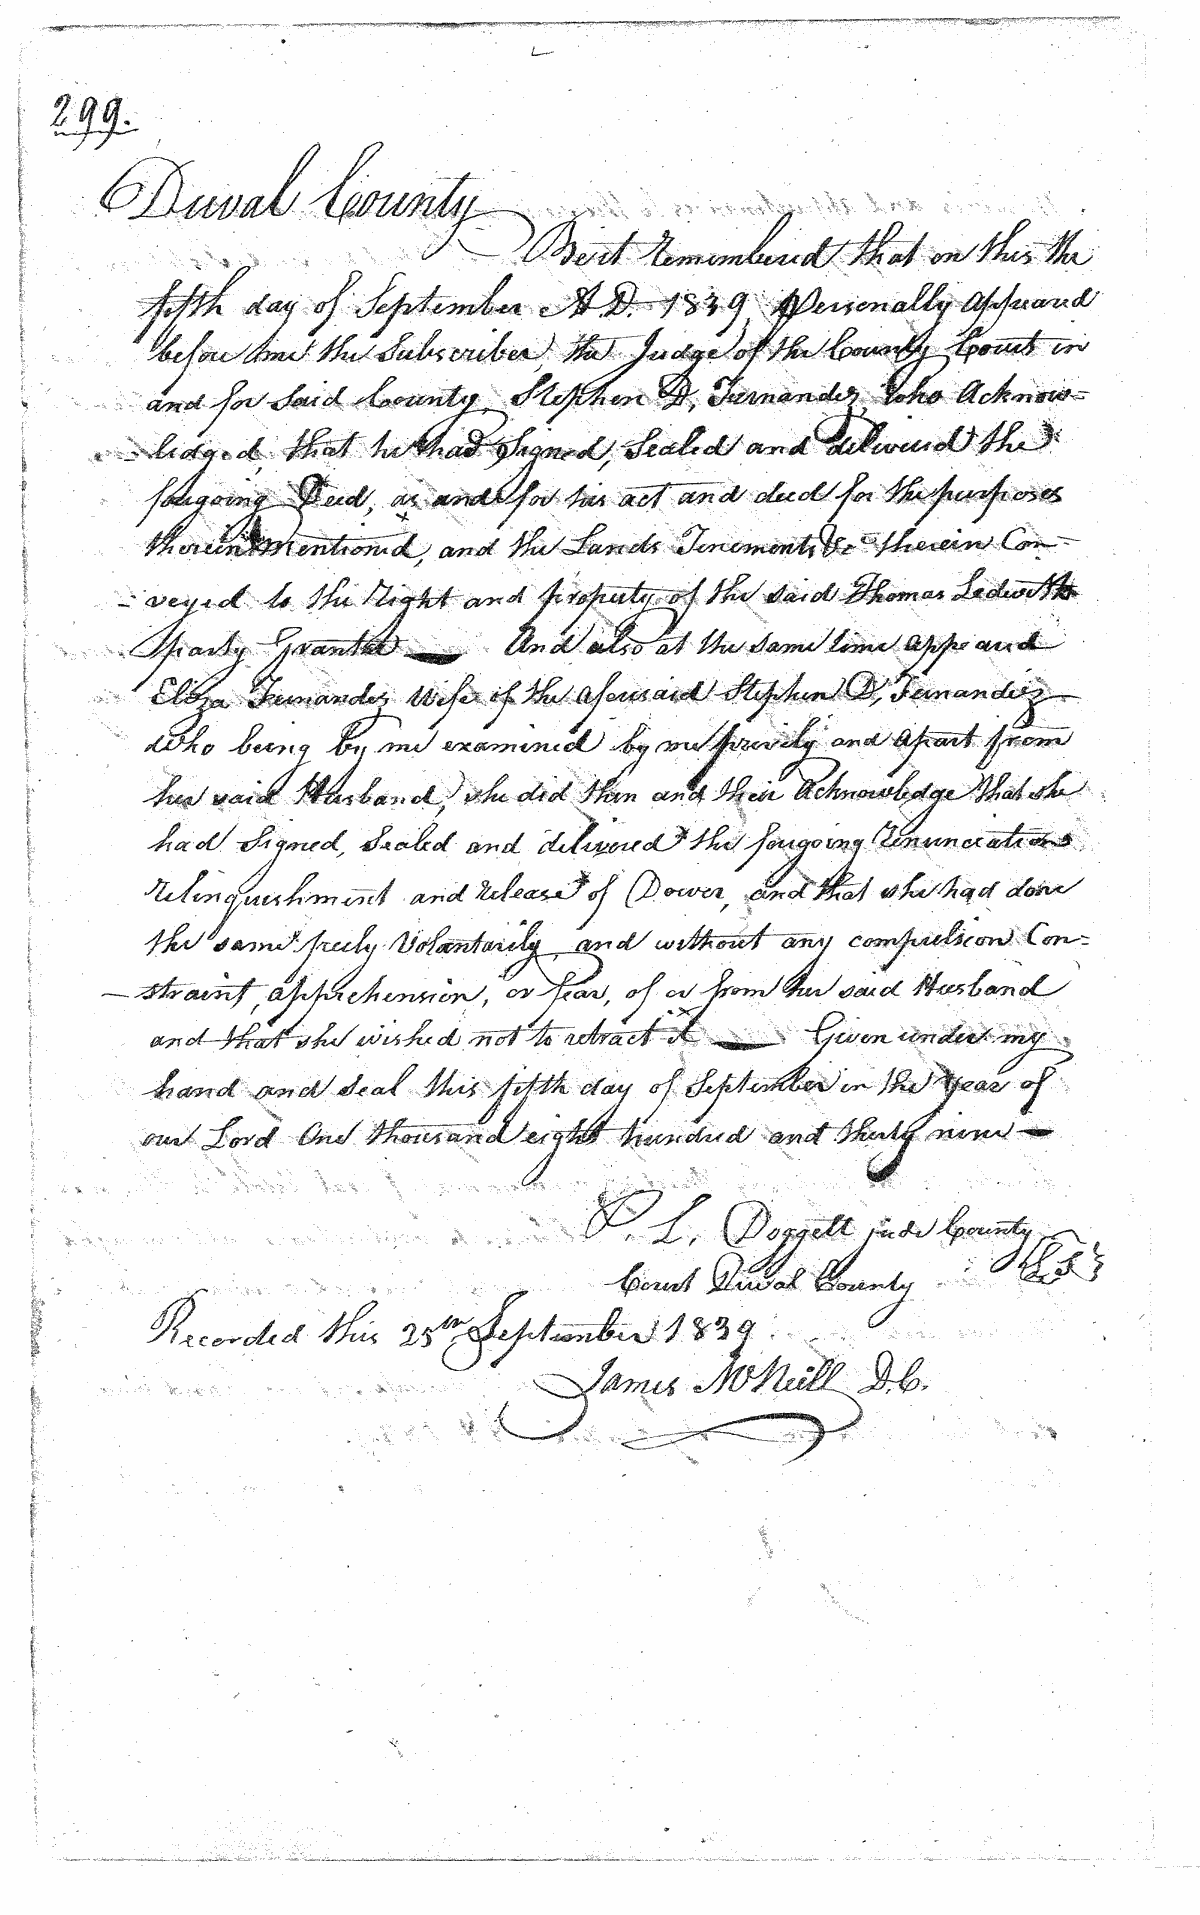 299.
Duval County
Be it remembered that on this the
fifth day of September A D. 1839, Personally appeared
before me the Subscriber, the Judge of the County Court in
and for said County, Stephen D, Fernandez, who Acknow=
-ledged, that he had Signed, Sealed and delivered the
forgoing Deed, as and for his act and deed for the purposes
therein mentioned, and the Lands Tenements &c therein Con-
-veyed to the right and property of the said Thomas Ledwith
party Grantee — And also at the same time appeared
Eliza Fernandez wife of the aforesaid Stephen D, Fernandez
who being by me examined by me privily and apart from
her said Husband, she did then and their Acknowledge that she
had Signed, Sealed and delivered the forgoing renunciation
relinquishment and release of Dower, and that she had done
the same freely Volantarily, and without any compulsion Con=
-straint, apprehension, or fear, of or from her said Husband
and that she wished not to retract it — Given under my
hand and seal this fifth day of September in the Year of
our Lord One thousand eight hundred and thirty nine —
P. L. Doggett jude County
Court Duval County
Recorded this 25th September 1839
James McNeill D.C.